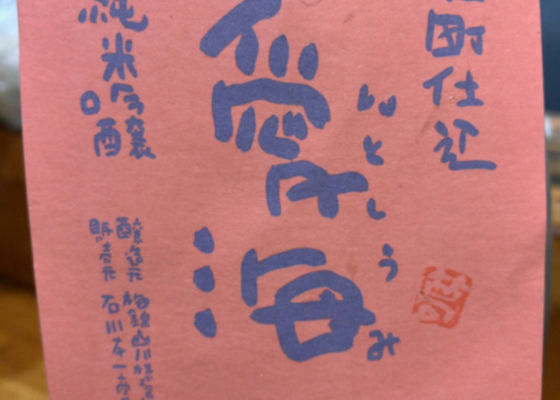 町仕込
愛海
いとしうみ
純米吟醸
醸造元 梅錦山川
販売元 石川